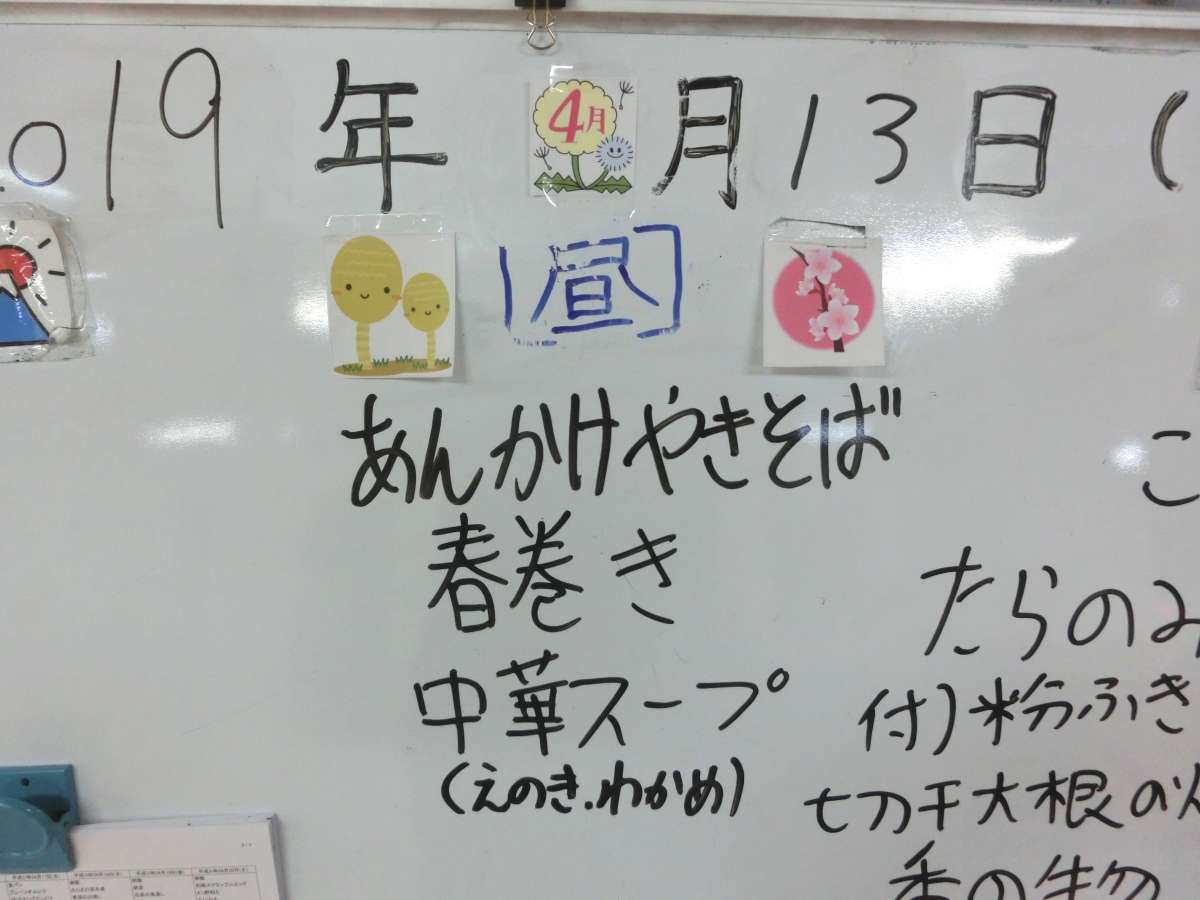 2019年 4月 月13日(
[昼]
あんかけやきそば
春巻き
中華スープ
(えのき.わかめ)
こ
たらのみ
付)粉ふき
切干大根の
香の物